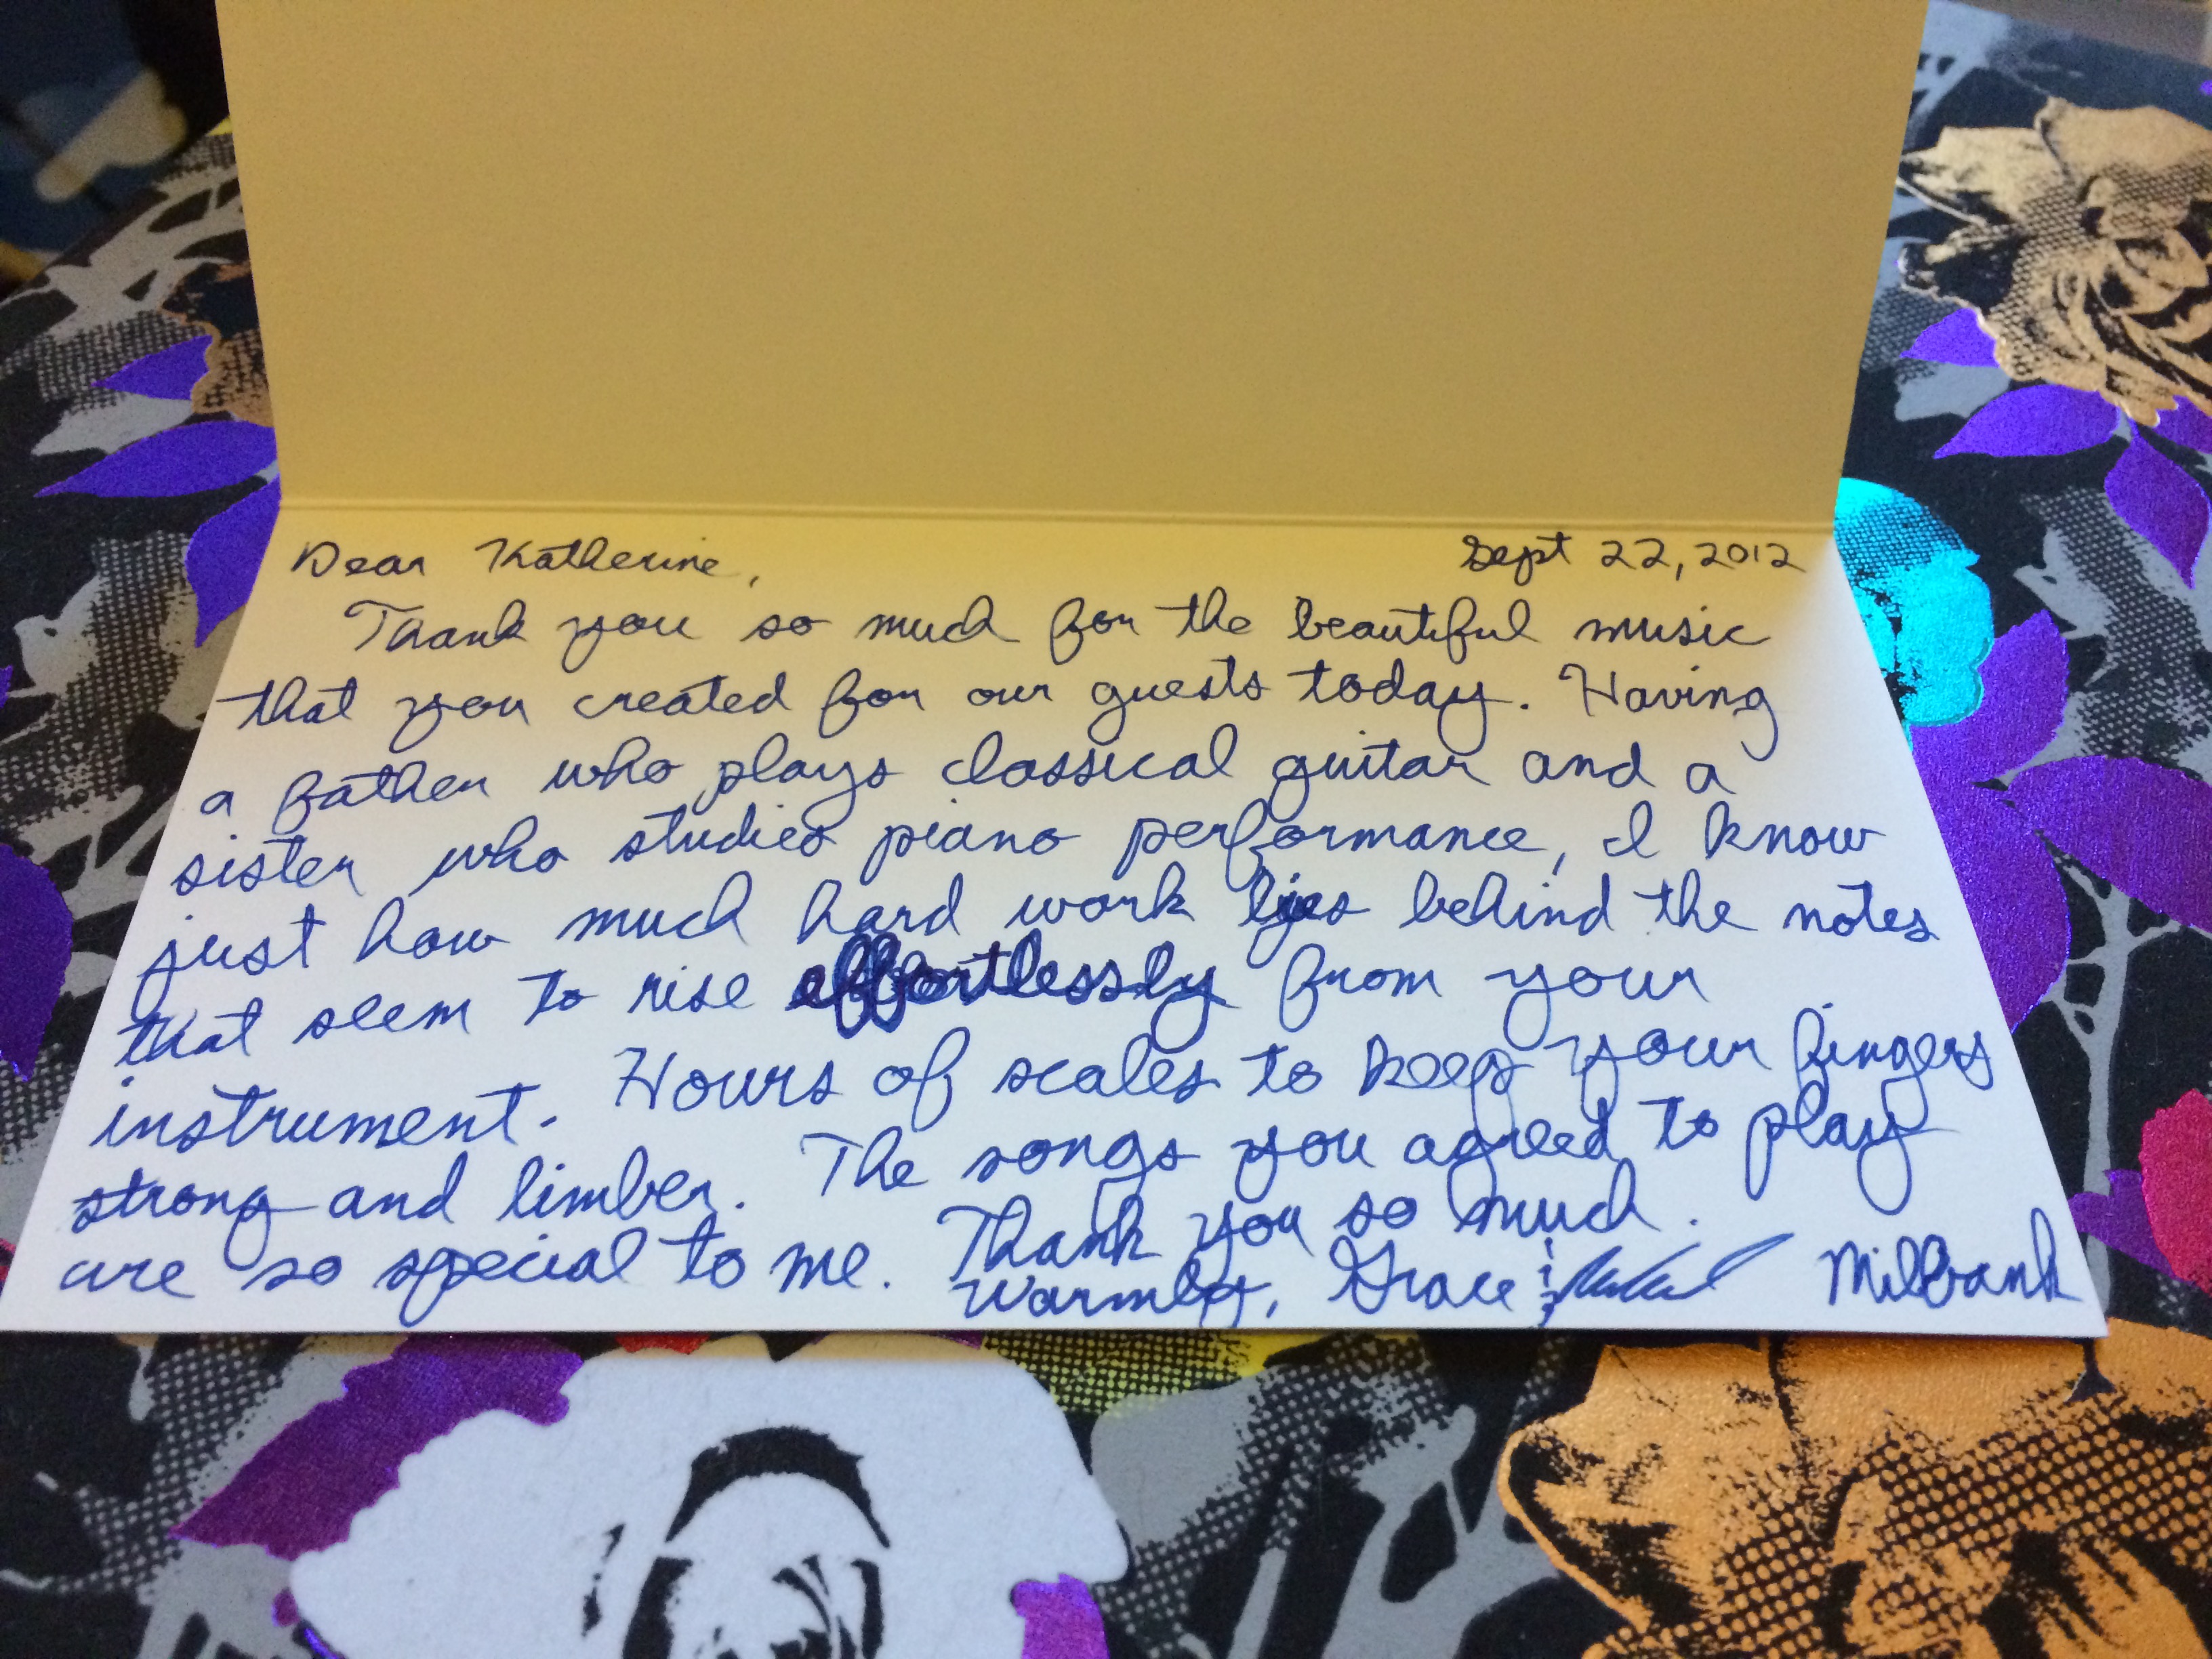 Dear Katherine,
Sept 22, 2012
Thank you so much for the beautiful music
that you created for our guests today. Having
a father who plays classical guitar and a
sister who studies piano performance, I know
just how much hard work lies behind the notes
that seem to rise effortlessly from your
instrument. Hours of scales to keep your fingers
strong and limber. The songs you agreed to play
are so special to me. Thank you so much.
Warmly, Grace Milbank